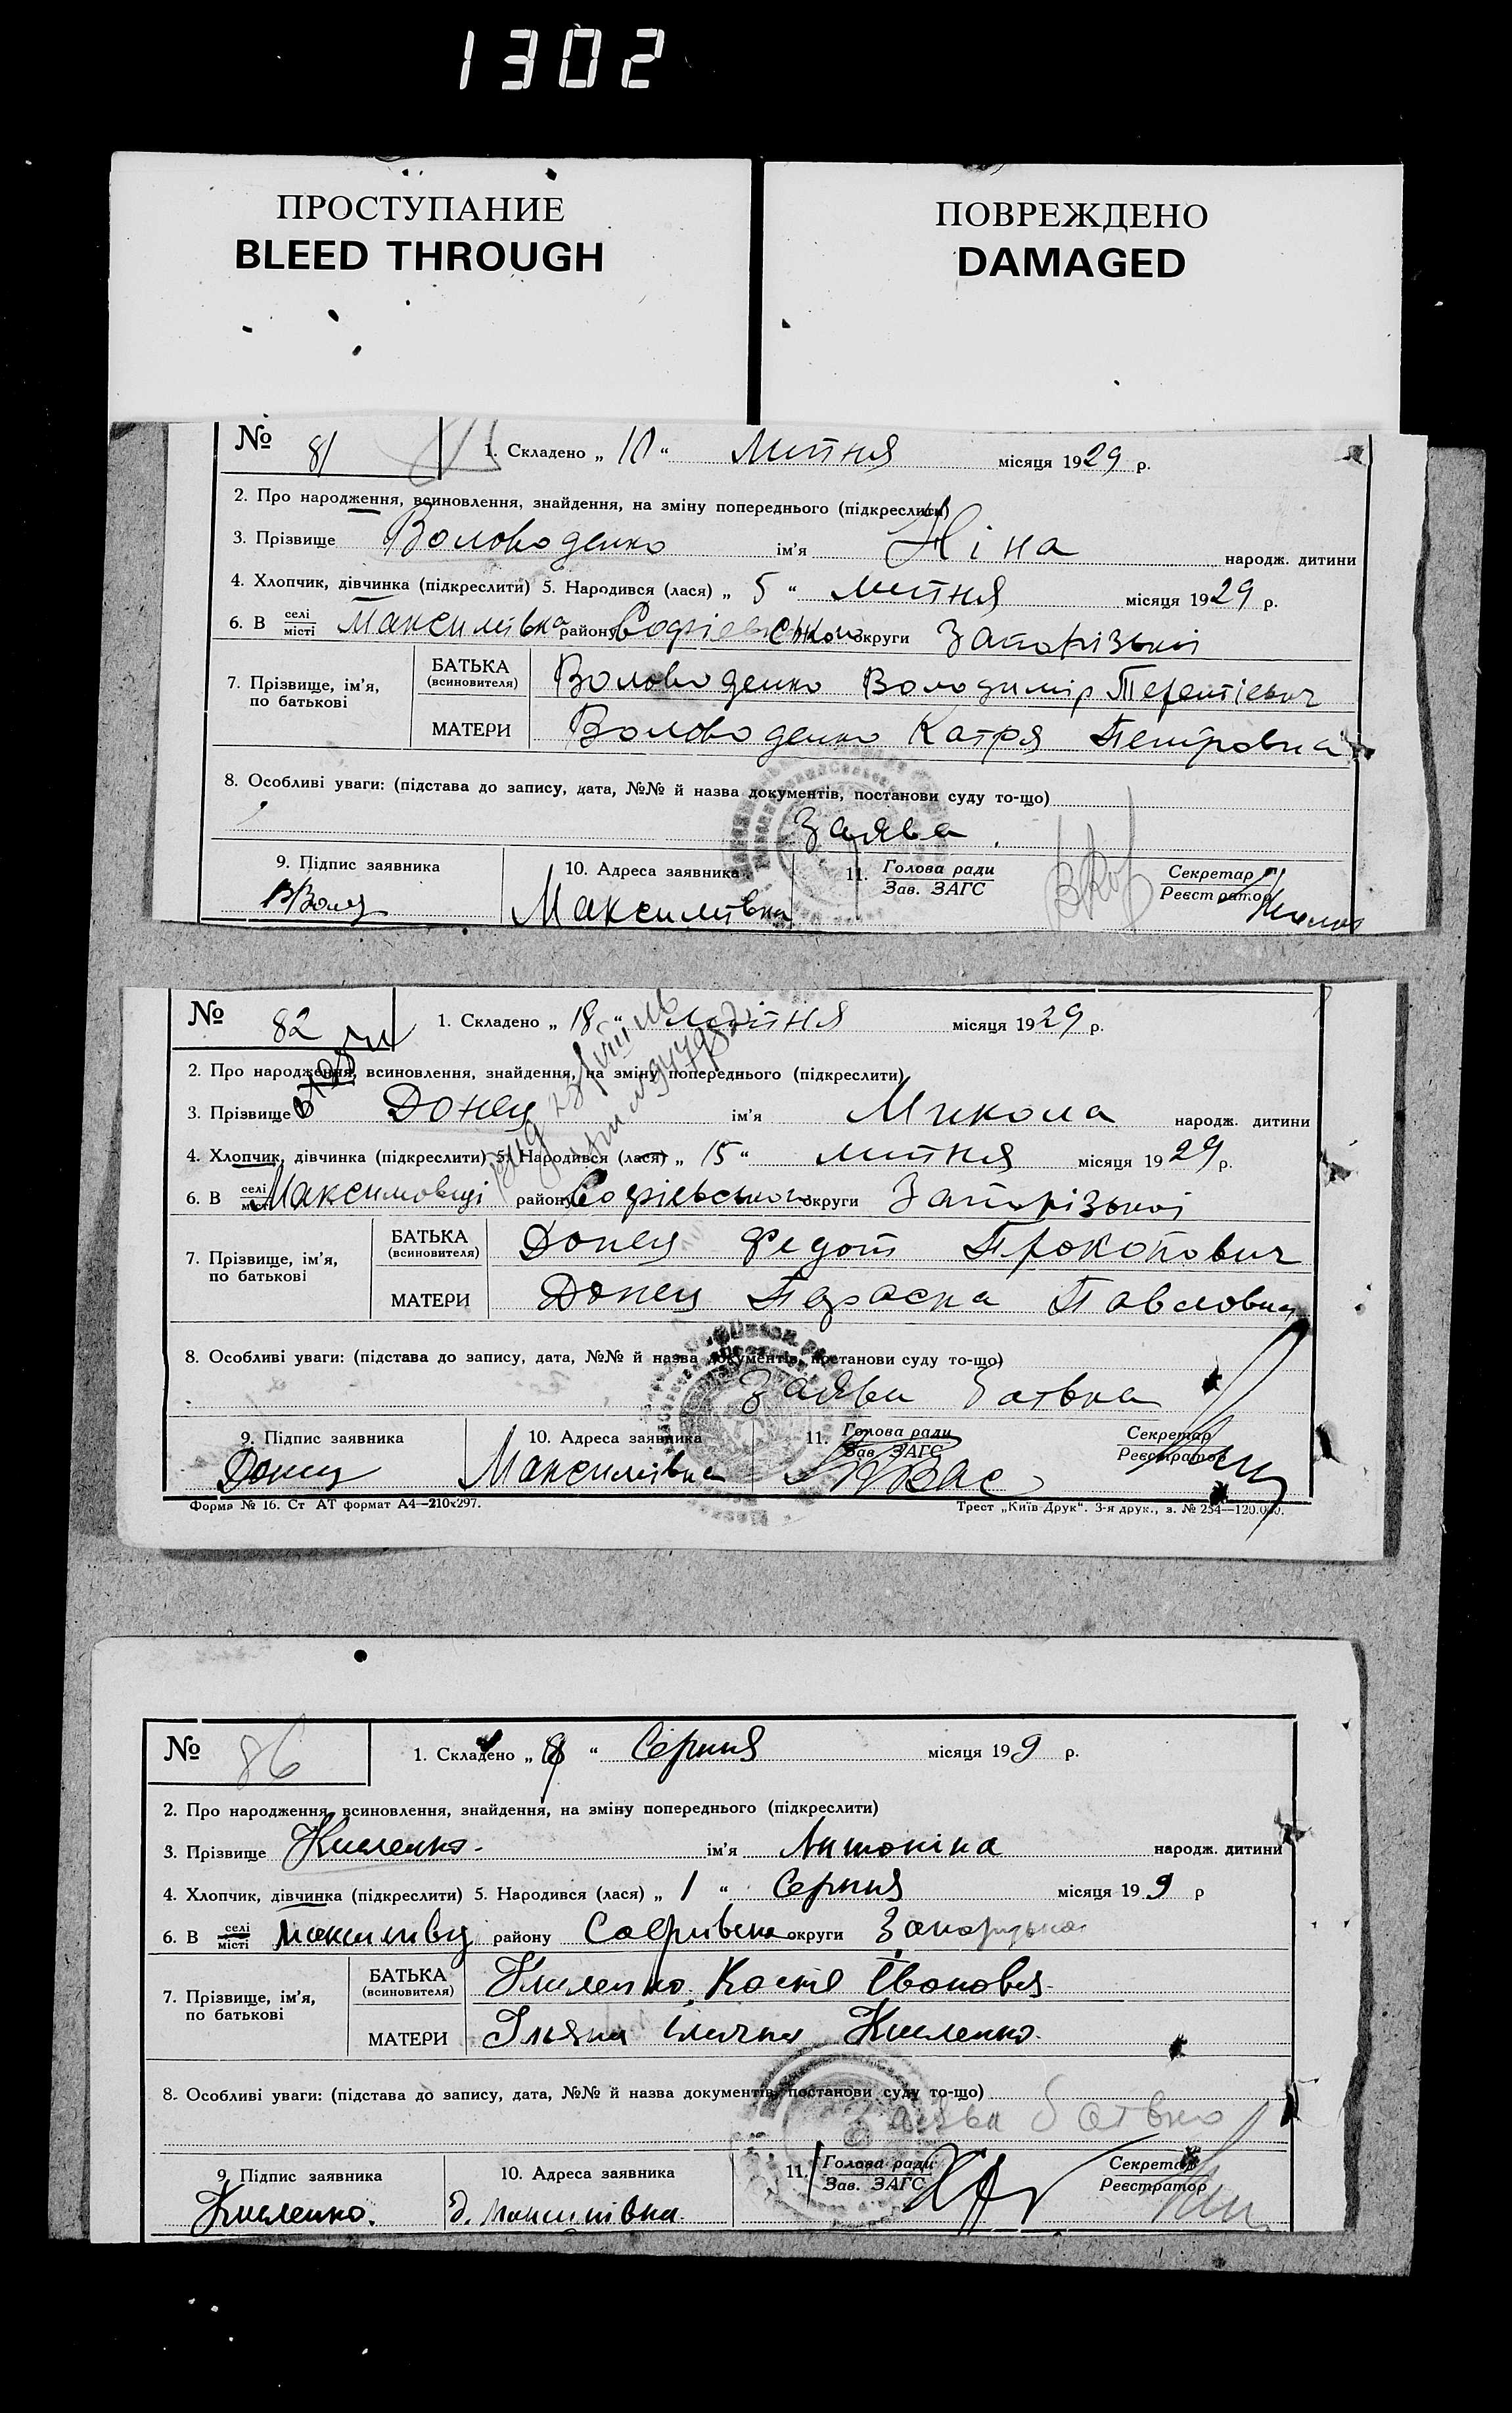 1302
ПРОСТУПАНИЕ
BLEED THROUGH
ПОВРЕЖДЕНО
DAMAGED
№ 81 1. Складено „ 10 “ Липня місяця 1929 р.
2. Про народження, всиновлення, знайдення, на зміну попереднього (підкреслити)
3. Прізвище Воловоденко ім’я Ніна народж. дитини
4. Хлопчик, дівчинка (підкреслити) 5. Народився (лася) „ 5 “ липня місяця 1929 р.
6. В селі місті Максимівка району Софіевської округи Запорізької
7. Прізвище, ім’я, по батькові
БАТЬКА (всиновителя) Воловоденко Володимір Терентіевич
МАТЕРИ Воловоденко Катря Петровна
8. Особливі уваги: (підстава до запису, дата, №№ й назва документів, постанови суду то-що)
Заява
9. Підпис заявника 10. Адреса заявника 11. Голова ради Зав. ЗАГС Секретар Реєстратор
Максимівка
№ 82 1. Складено „ 18 “ липня місяця 1929 р.
2. Про народження, всиновлення, знайдення, на зміну попереднього (підкреслити)
3. Прізвище Донец ім’я Микола народж. дитини
4. Хлопчик, дівчинка (підкреслити) 5. Народився (лася) „ 15 “ липня місяця 1929 р.
6. В селі місті Максимовці району Софіевської округи Запорізької
7. Прізвище, ім’я, по батькові
БАТЬКА (всиновителя) Донец Федот Прокопович
МАТЕРИ Донец Параска Павловна
8. Особливі уваги: (підстава до запису, дата, №№ й назва документів, постанови суду то-що)
Заява батька
9. Підпис заявника 10. Адреса заявника 11. Голова ради Зав. ЗАГС Секретар Реєстратор
Донец Максимівка
Форма № 16. Ст АТ формат А4—210х297. Трест „Київ-Друк“. 3-я друк., з. № 254—120.000.
№ 86 1. Складено „ 8 “ Серпня місяця 199 р.
2. Про народження, всиновлення, знайдення, на зміну попереднього (підкреслити)
3. Прізвище Кисленко ім’я Антоніна народж. дитини
4. Хлопчик, дівчинка (підкреслити) 5. Народився (лася) „ 1 “ Серпня місяця 199 р
6. В селі місті району округи
7. Прізвище, ім’я, по батькові
БАТЬКА (всиновителя) Кисленко Костя
МАТЕРИ Кисленко
8. Особливі уваги: (підстава до запису, дата, №№ й назва документів, постанови суду то-що)
Заява батько
9. Підпис заявника 10. Адреса заявника 11. Голова ради Зав. ЗАГС Секретар Реєстратор
Кисленко. Максимівка